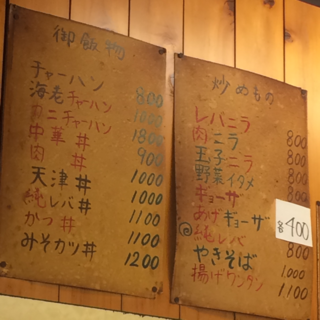 御飯物
チャーハン 800
海老チャーハン 1000
カニチャーハン 1800
中華丼 900
肉丼 1000
天津丼 1000
純レバ丼 1100
かつ丼 1100
みそカツ丼 1200
炒めもの
レバニラ 800
肉ニラ 800
玉子ニラ 800
野菜イタメ 800
ギョーザ
あげギョーザ 400
純レバ 800
やきそば 1,000
揚げワンタン 1,100